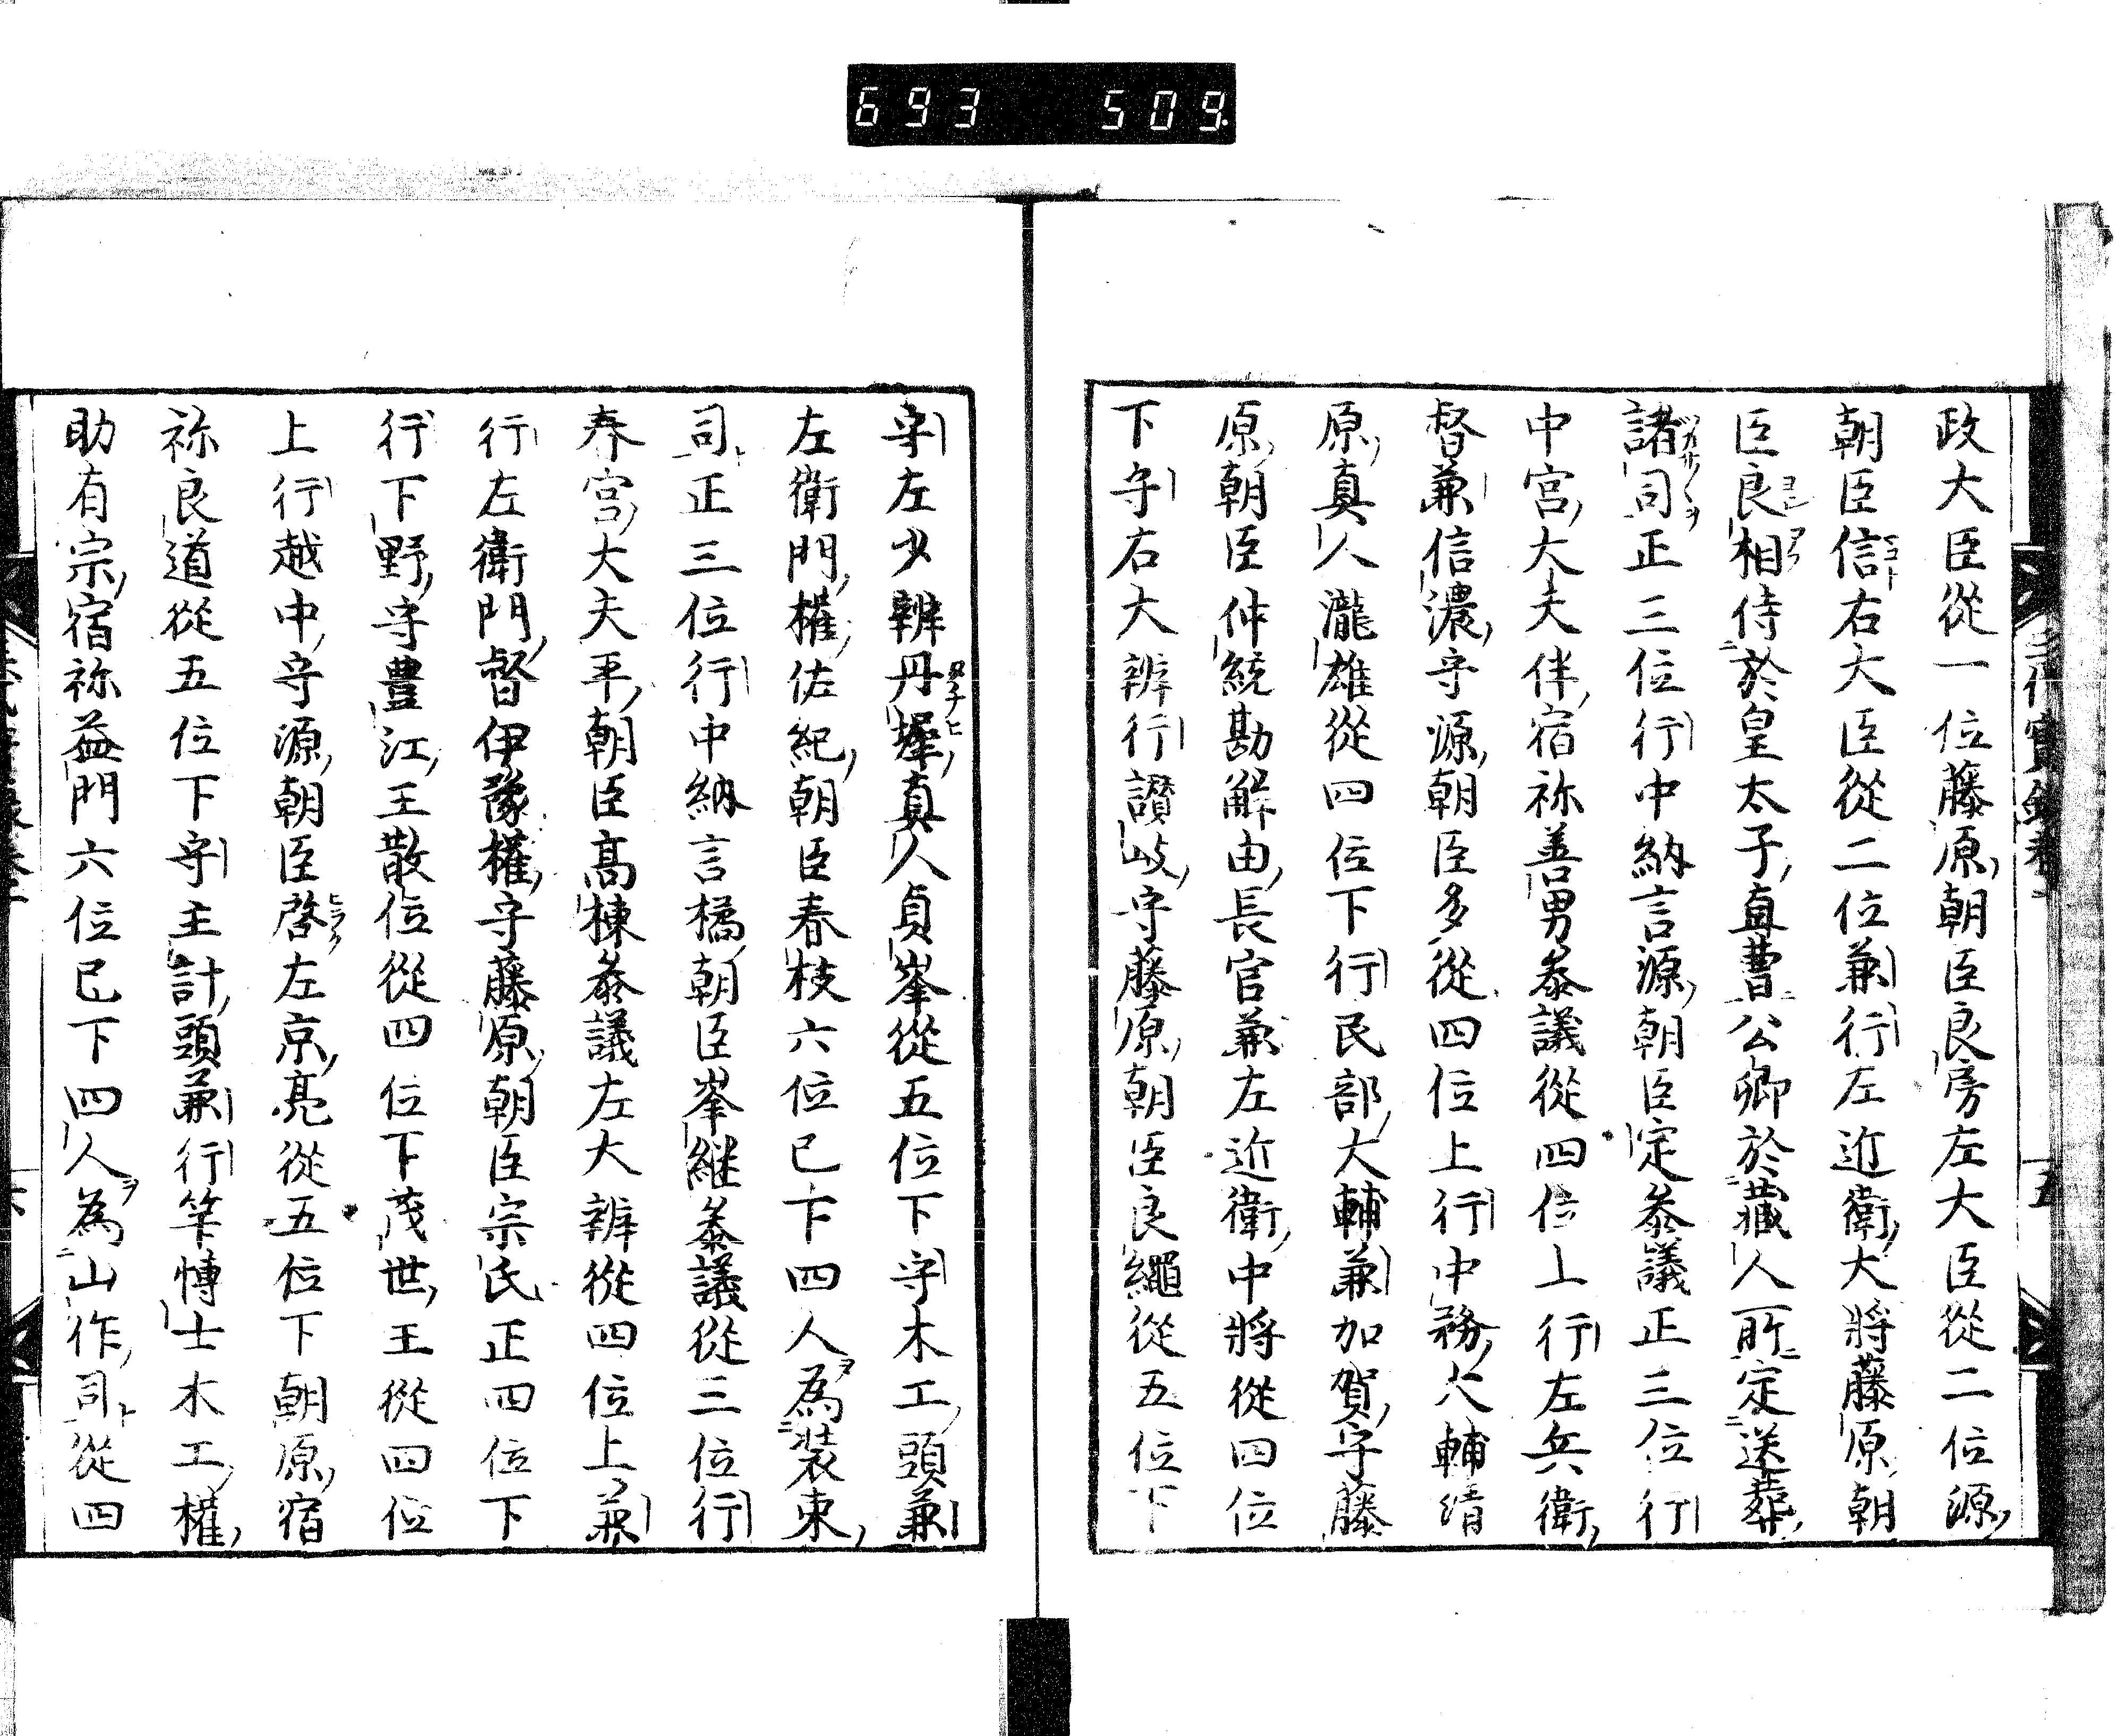 693 509
政大臣從一位藤原朝臣良房左大臣從二位源
朝臣信右大臣從二位兼行左近衛大將藤原朝
臣良相侍於皇太子直曹公卿於藏人所定送葬
諸司正三位行中納言源朝臣定參議正三位行
中宮大夫伴宿祢善男參議從四位上行左兵衛
督兼信濃守源朝臣多從四位上行中務大輔清
原真人瀧雄從四位下行民部大輔兼加賀守藤
原朝臣仲統勘解由長官兼左近衛中將從四位
下守右大辨行讃岐守藤原朝臣良繩從五位下
守左少辨丹墀真人貞峯從五位下守木工頭兼
左衛門權佐紀朝臣春枝六位已下四人為裝束
司正三位行中納言橘朝臣峯繼參議從三位行
春宮大夫平朝臣高棟參議左大辨從四位上兼
行左衛門督伊豫權守藤原朝臣宗氏正四位下
行下野守豊江王散位從四位下茂世王從四位
上行越中守源朝臣啓左京亮從五位下朝原宿
祢良道從五位下守主計頭兼行筭博士木工權
助有宗宿祢益門六位已下四人為山作司從四